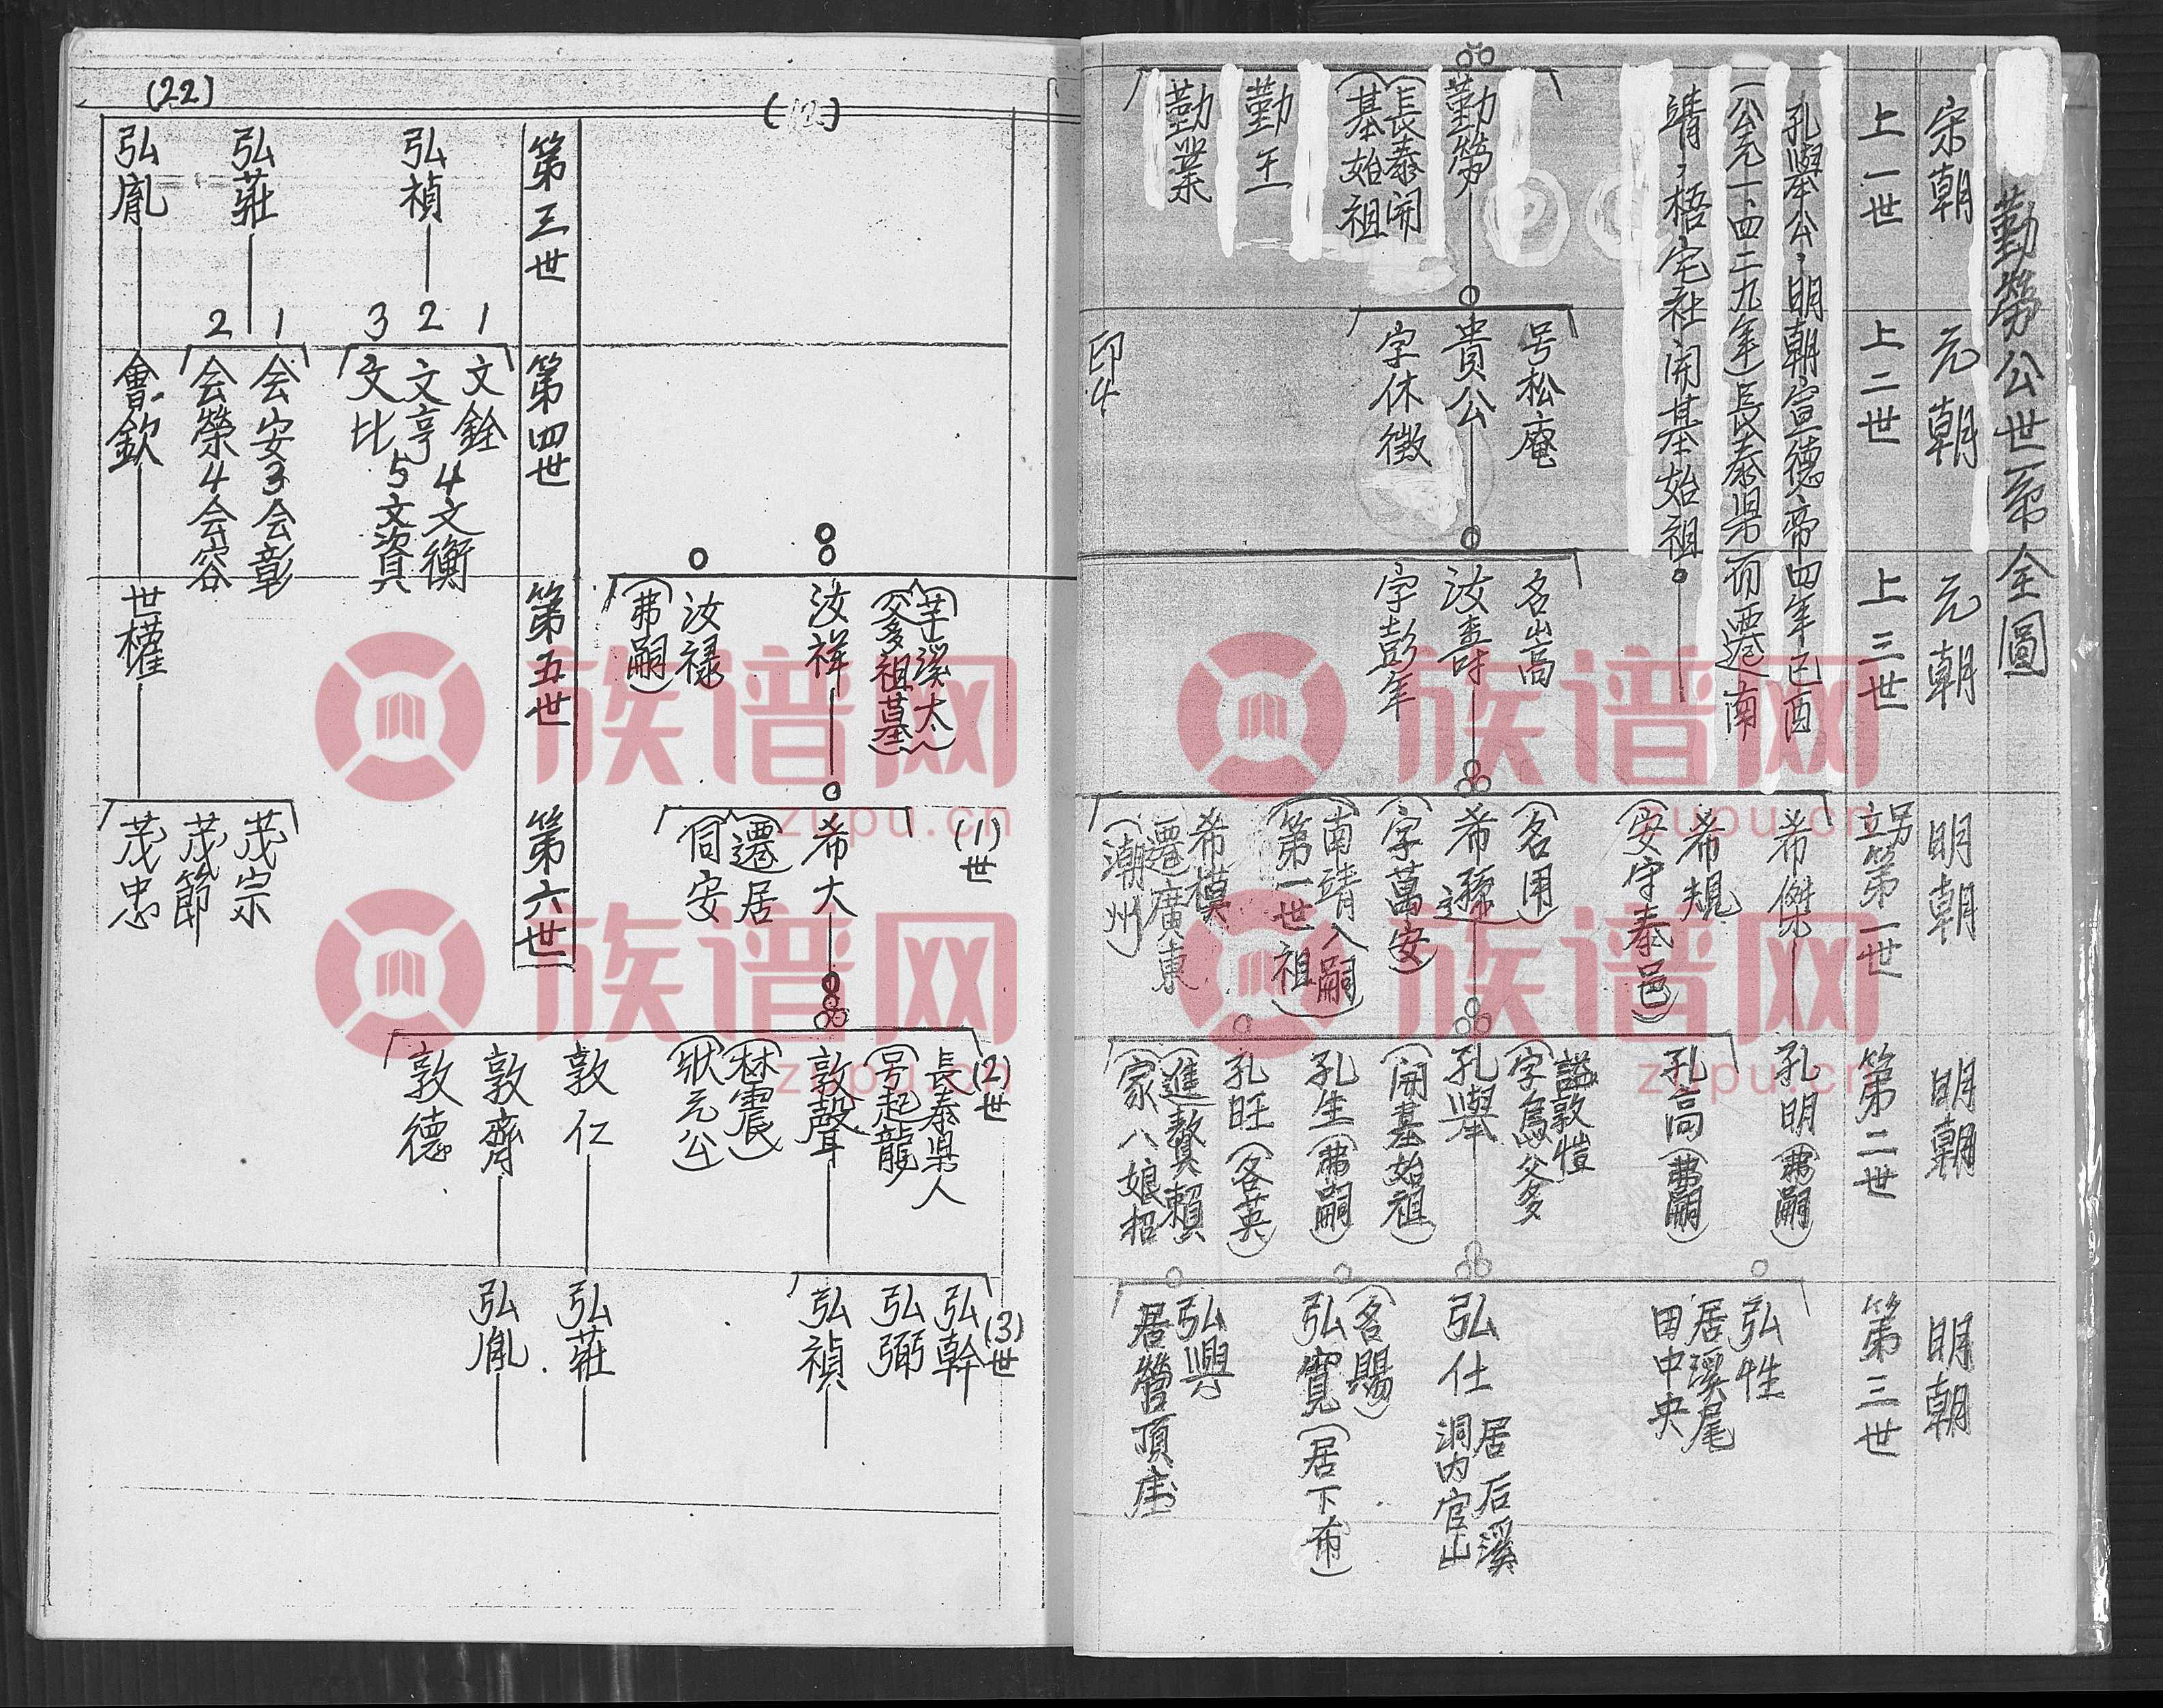 勤勞公世系全圖
宋朝
元朝
元朝
明朝
明朝
明朝
上一世
上二世
上三世
另立第一世
第二世
第三世
孔舉公，明朝宣德帝四年己酉
(公元一、四二九年)長泰県而迁南
靖，梧宅社開基始祖。
勤勞
(長泰開
基始祖
勤王
勤業
号松庵
貴公
字休徵
印4
名嵩
汝壽
字彭年
希傑
希規
(安守奉邑)
(名用)
希遜
(字萬安)
(南靖八嗣
第一世祖)
希模
遷廣東
(潮州)
孔明(弗嗣)
孔高(弗嗣)
諡敦愷
(字爲爹
孔舉
(開基始祖)
孔生(弗嗣)
孔旺(名英)
(進贅賴
家八娘招
弘性
居溪尾
田中央
弘仕
居后溪
洞内官山
(名賜)
弘寬(居下布)
弘興
居營頂庄
(12)
(芋溪太
爹祖墓)
汝祥
汝祿
(弗嗣)
(1)世
希大
(遷居
同安
(2)世
長泰県人
(号起龍
敦聲
(林震)
(狀元公)
敦仁
敦齊
敦德
(3)世
弘幹
弘弼
弘禎
弘莊
弘胤
(22)
第三世
第四世
第五世
第六世
弘楨
弘莊
弘胤
1 文銓
2 文亨
3 文比
4 文衡
5 文資
1 会安
2 会榮
3 会彰
4 会容
會欽
世權
茂宗
茂節
茂忠
族谱网
zupu.cn
族谱网
zupu.cn
族谱网
zupu.cn
族谱网
zupu.cn